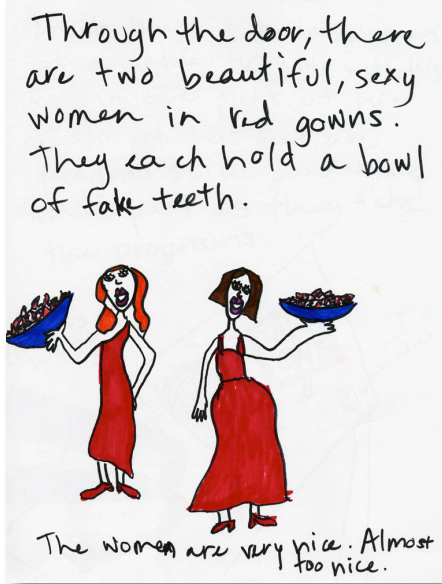 Through the door, there
are two beautiful, sexy
women in red gowns.
They each hold a bowl
of fake teeth.
The women are very nice. Almost
too nice.